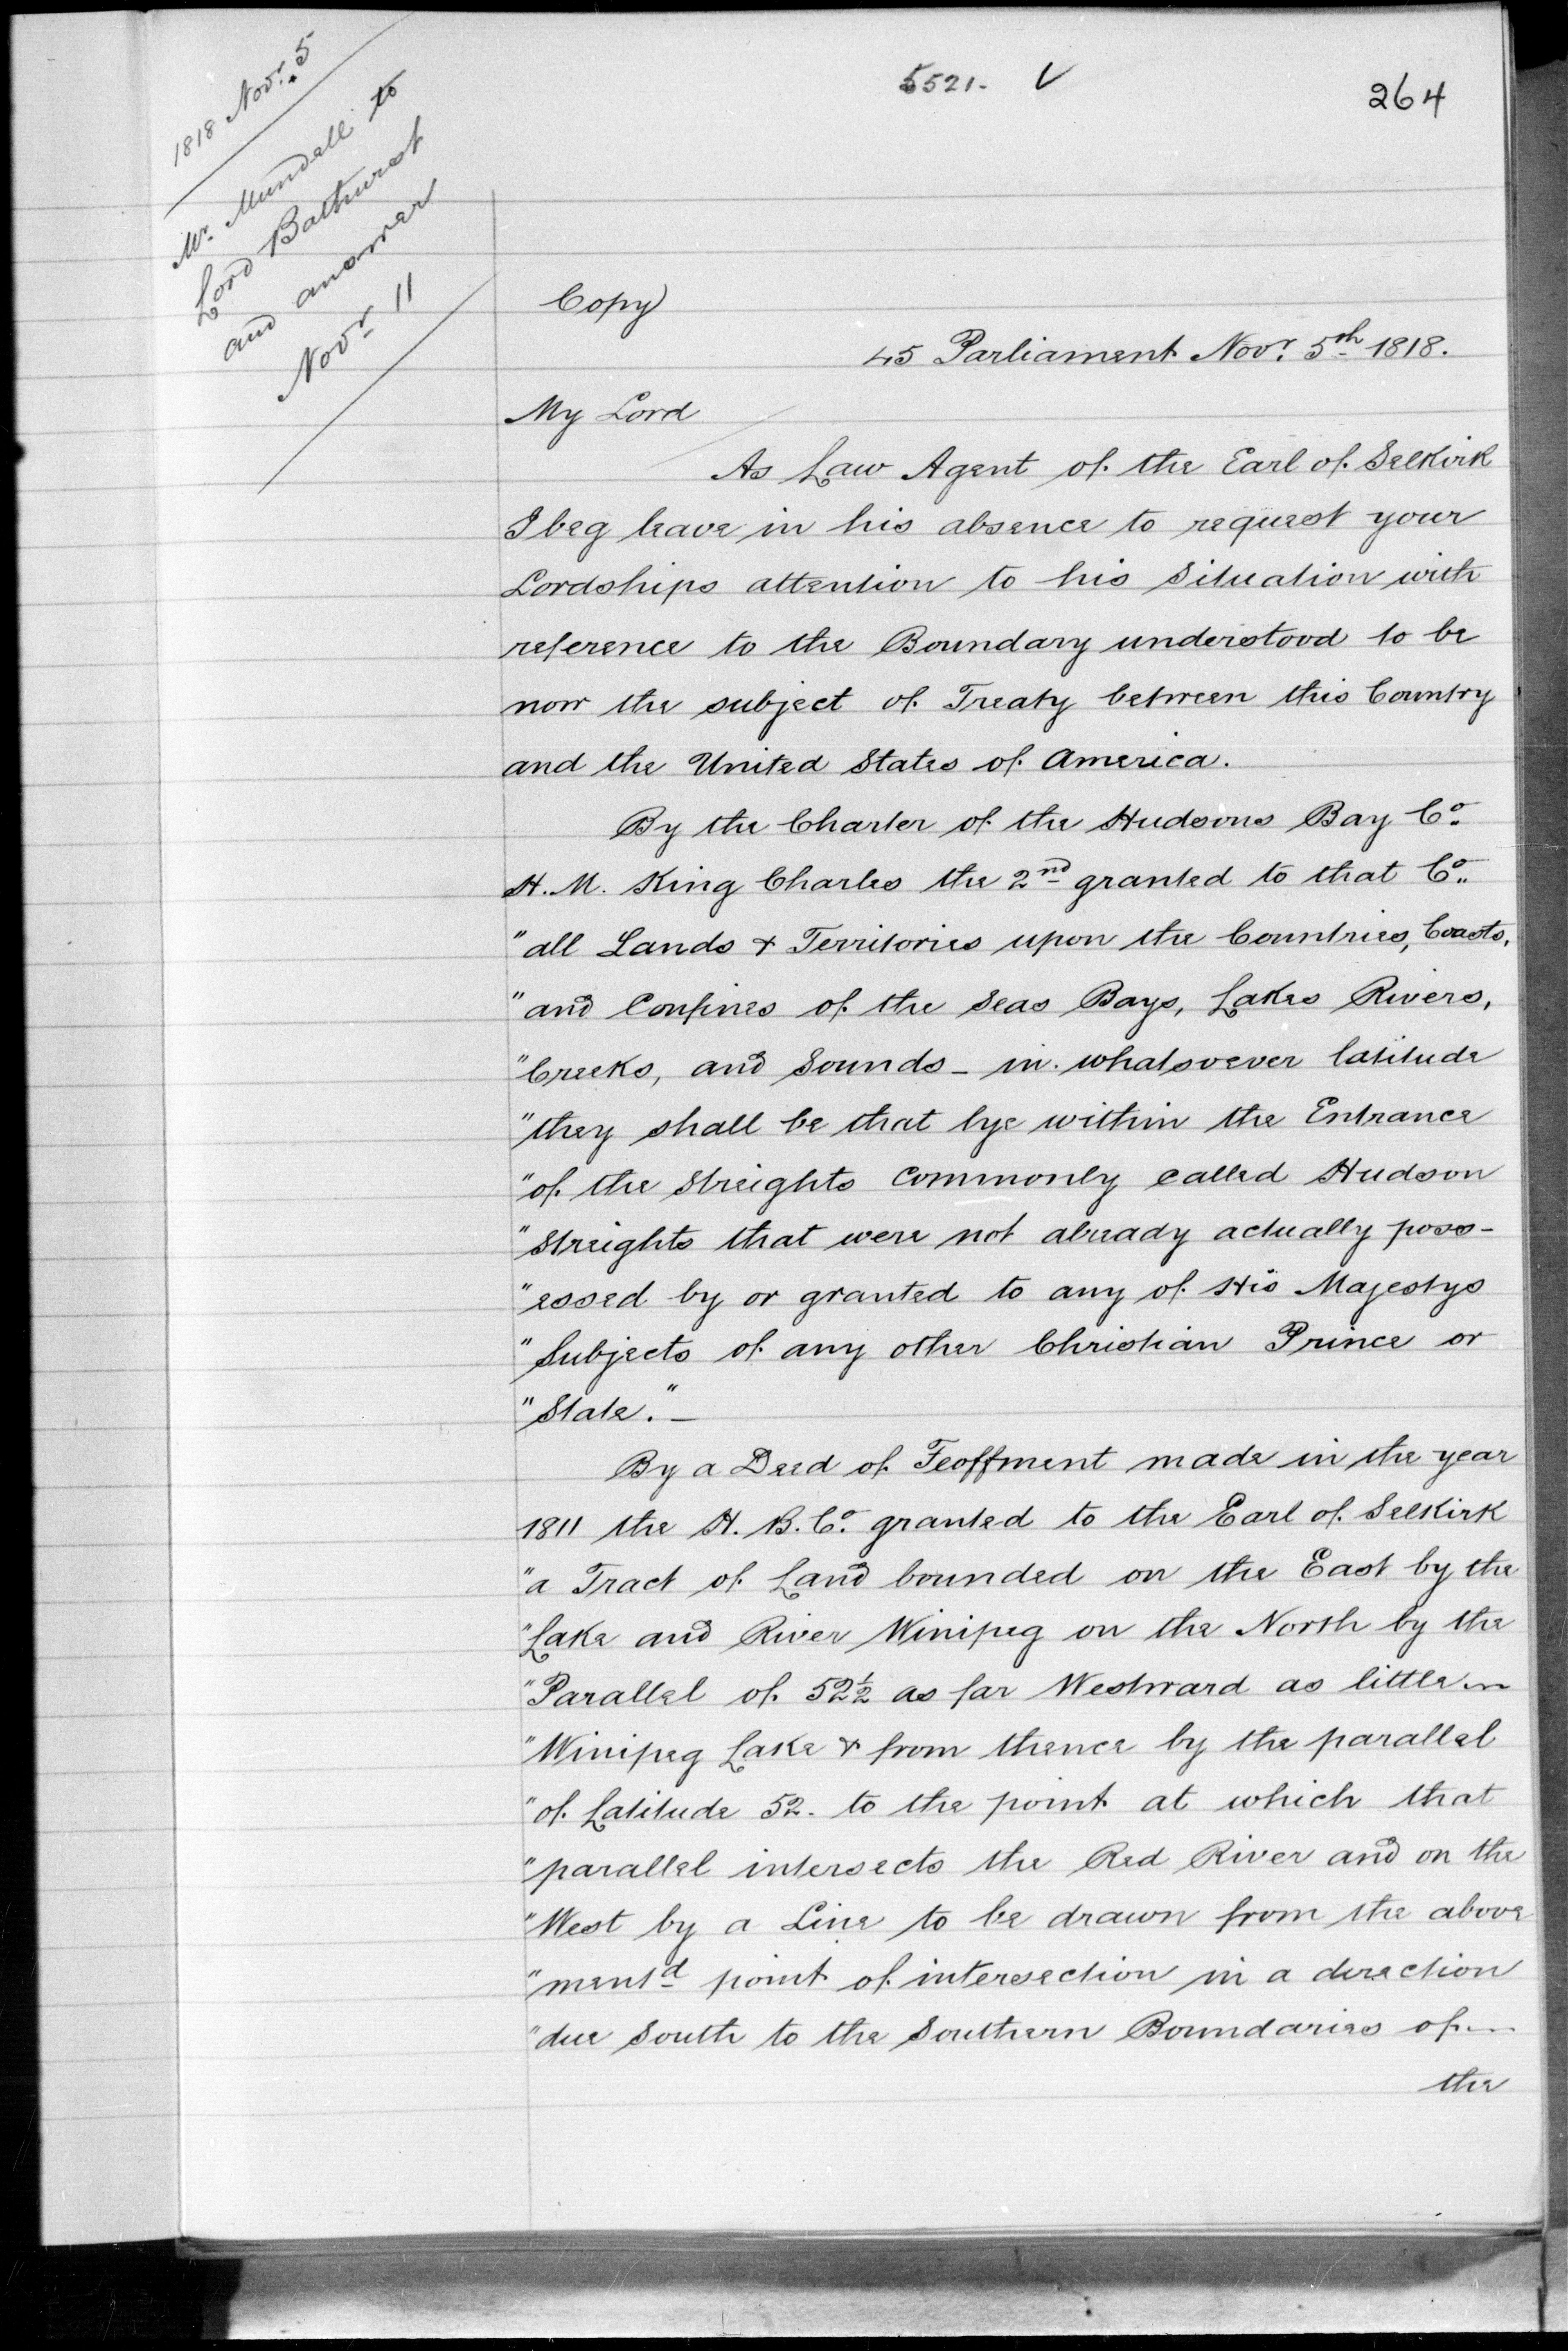 5521. V
264
1818 Novr. 5
Mr. Mundell to
Lord Bathurst
and answer
Novr 11
Copy
45 Parliament Novr. 5th 1818.
My Lord
As Law Agent of the Earl of Selkirk
I beg leave in his absence to request your
Lordships attention to his Situation with
reference to the Boundary understood to be
now the subject of Treaty between this Country
and the United States of America.
By the Charter of the Hudsons Bay Co.
H. M. King Charles the 2nd granted to that Co.
"all Lands & Territories upon the Countries, Coasts,
"and Confines of the Seas Bays, Lakes Rivers,
"Creeks, and Sounds - in whatsoever latitude
"they shall be that lye within the Entrance
"of the Streights Commonly called Hudson
"Streights that were not already actually poss-
"essed by or granted to any of His Majestys
"Subjects of any other Christian Prince or
"State." -
By a Deed of Feoffment made in the year
1811 the H. B. Co. granted to the Earl of Selkirk
"a Tract of Land bounded on the East by the
"Lake and River Winipeg on the North by the
"Parallel of 52½ as far Westward as little
"Winipeg Lake & from thence by the parallel
"of Latitude 52. to the point at which that
"parallel intersects the Red River and on the
"West by a Line to be drawn from the above
"mentd point of intersection in a direction
"due South to the Southern Boundaries of
the